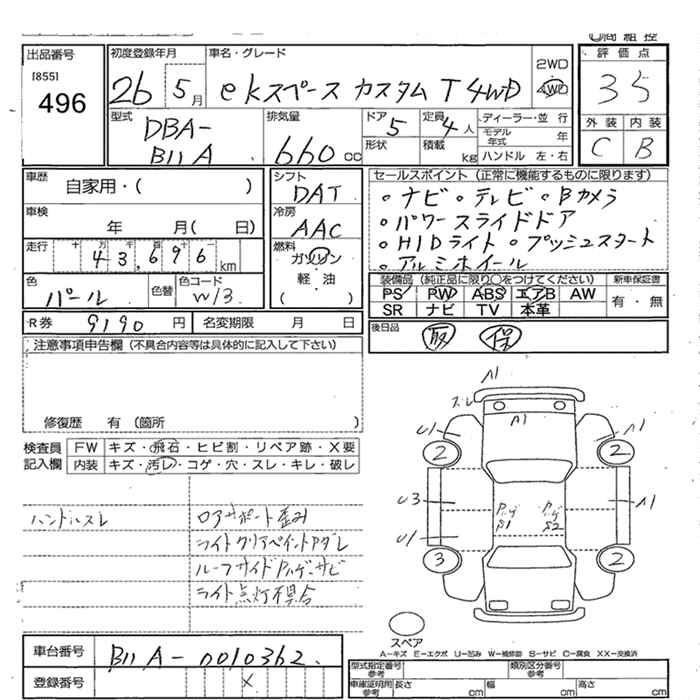 商組控
出品番号
[855]
496
初度登録年月
26 5月
車名・グレード
ekスペース カスタム T 4WD
2WD
4WD
評価点
35
型式
DBA-
B11A
排気量
660 cc
ドア
5
形状
定員
4人
積載
kg
ディーラー・並 行
モデル年式 年
ハンドル 左・右
外装 内装
C B
車歴
自家用・( )
車検
年 月( 日)
走行
十 万 千 百 十
43,696 km
色
パール
色替
色コード
W13
シフト
DAT
冷房
AAC
燃料
ガソリン
・
軽・油
( )
セールスポイント (正常に機能するものに限ります)
。ナビ 。テレビ 。Bカメラ
。パワースライドドア
。HIDライト 。プッシュスタート
。アルミホイール
装備品 (純正品に限り○をつけてください)
PS PW ABS エアB AW
SR ナビ TV 本革
新車保証書
有・無
R券 9190 円
名変期限 月 日
後日品
取 保
注意事項申告欄 (不具合内容等は具体的に記入して下さい)
修復歴 有 (箇所 )
検査員
記入欄
FW キズ・飛石・ヒビ割・リペア跡・X要
内装 キズ・汚レ・コゲ・穴・スレ・キレ・破レ
ハンドルスレ
ロアサポート歪み
ライトクリアペイントハダレ
ルーフサイドハンダーサビ
ライト点灯不具合
A1
スレ
U1
A1
2
2
U3
A1
U1
3
2
S1
S2
スペア
A-キズ E-エクボ U-凹み W-補修跡 S-サビ C-腐食 XX-交換済
車台番号
B11A-0010362
登録番号
X
型式指定番号
参考
類別区分番号
参考
車庫証明用
参考
長さ cm
幅 cm
高さ cm